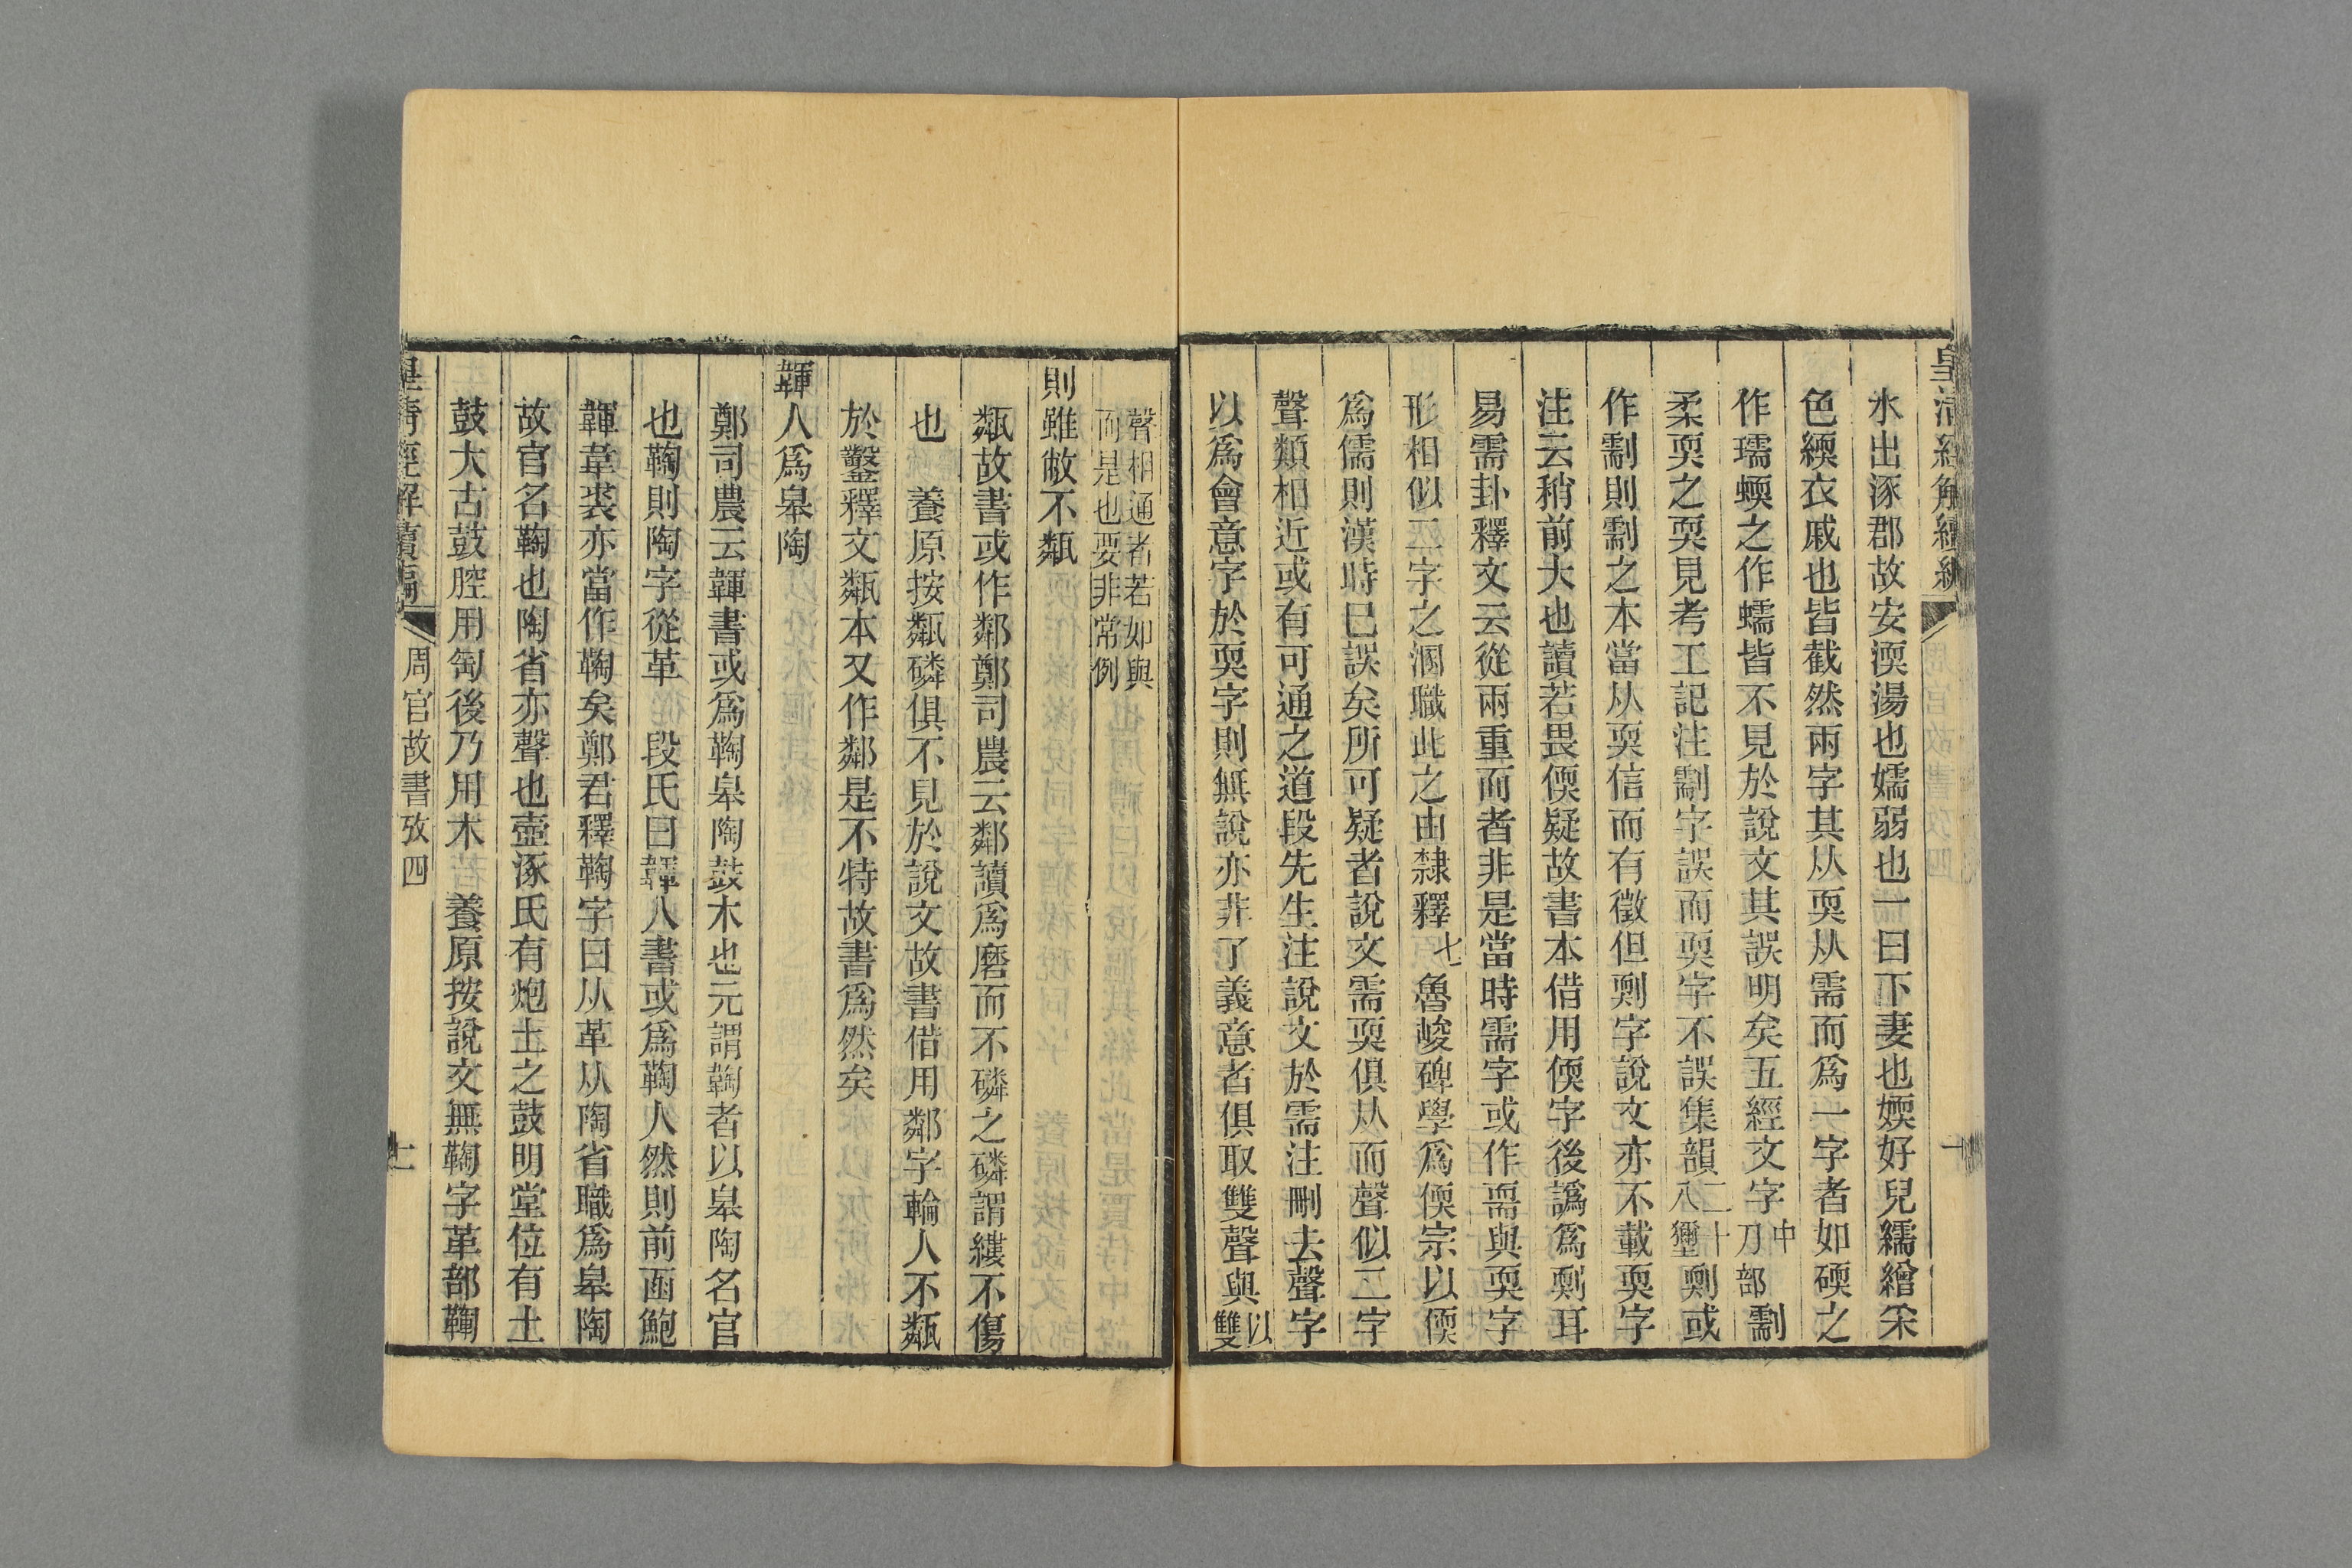 水出涿郡故安渜湯也嬬弱也一曰下妻也媆好兒繻繒采
色緛衣戚也皆截然兩字其从耎从需而爲一字者如碝之
作瓀蝡之作蠕皆不見於說文其誤明矣五經文字刀部中劅
柔耎之耎見考工記注劅字誤而耎字不誤集韻二十八獮剰或
作劅則劅之本當从耎信而有徵但剰字說文亦不載耎字
注云稍前大也讀若畏偄疑故書本借用偄字後譌爲剰耳
易需卦釋文云從雨重而者非是當時需字或作耎與耎字
形相似二字之溷職此之由隸釋七魯峻碑學爲偄宗以偄
爲儒則漢時已誤矣所可疑者說文需耎俱从而聲似二字
聲類相近或有可通之道段先生注說文於需注刪去聲字
以爲會意字於耎字則無說亦非了義意者俱取雙聲與以雙
聲相通者若如與而是也要非常例
則雖敝不甐
甐故書或作鄰鄭司農云鄰讀爲磨而不磷之磷謂縷不傷
也 養原按甐磷俱不見於說文故書借用鄰字輪人不甐
於鑿釋文甐本又作鄰是不特故書爲然矣
韗人爲皋陶
鄭司農云韗書或爲鞠皋陶鼓木也元謂鞠者以皋陶名官
也鞠則陶字從革 段氏曰韗人書或爲鞠人然則前函鮑
韗韋裘亦當作鞠矣鄭君釋鞠字曰从革从陶省職爲皋陶
故官名鞠也陶省亦聲也壺涿氏有炮土之鼓明堂位有土
鼓大古鼓腔用匋後乃用木 養原按說文無鞠字革部鞠
皇清經解續編 周官故書攷四 十一